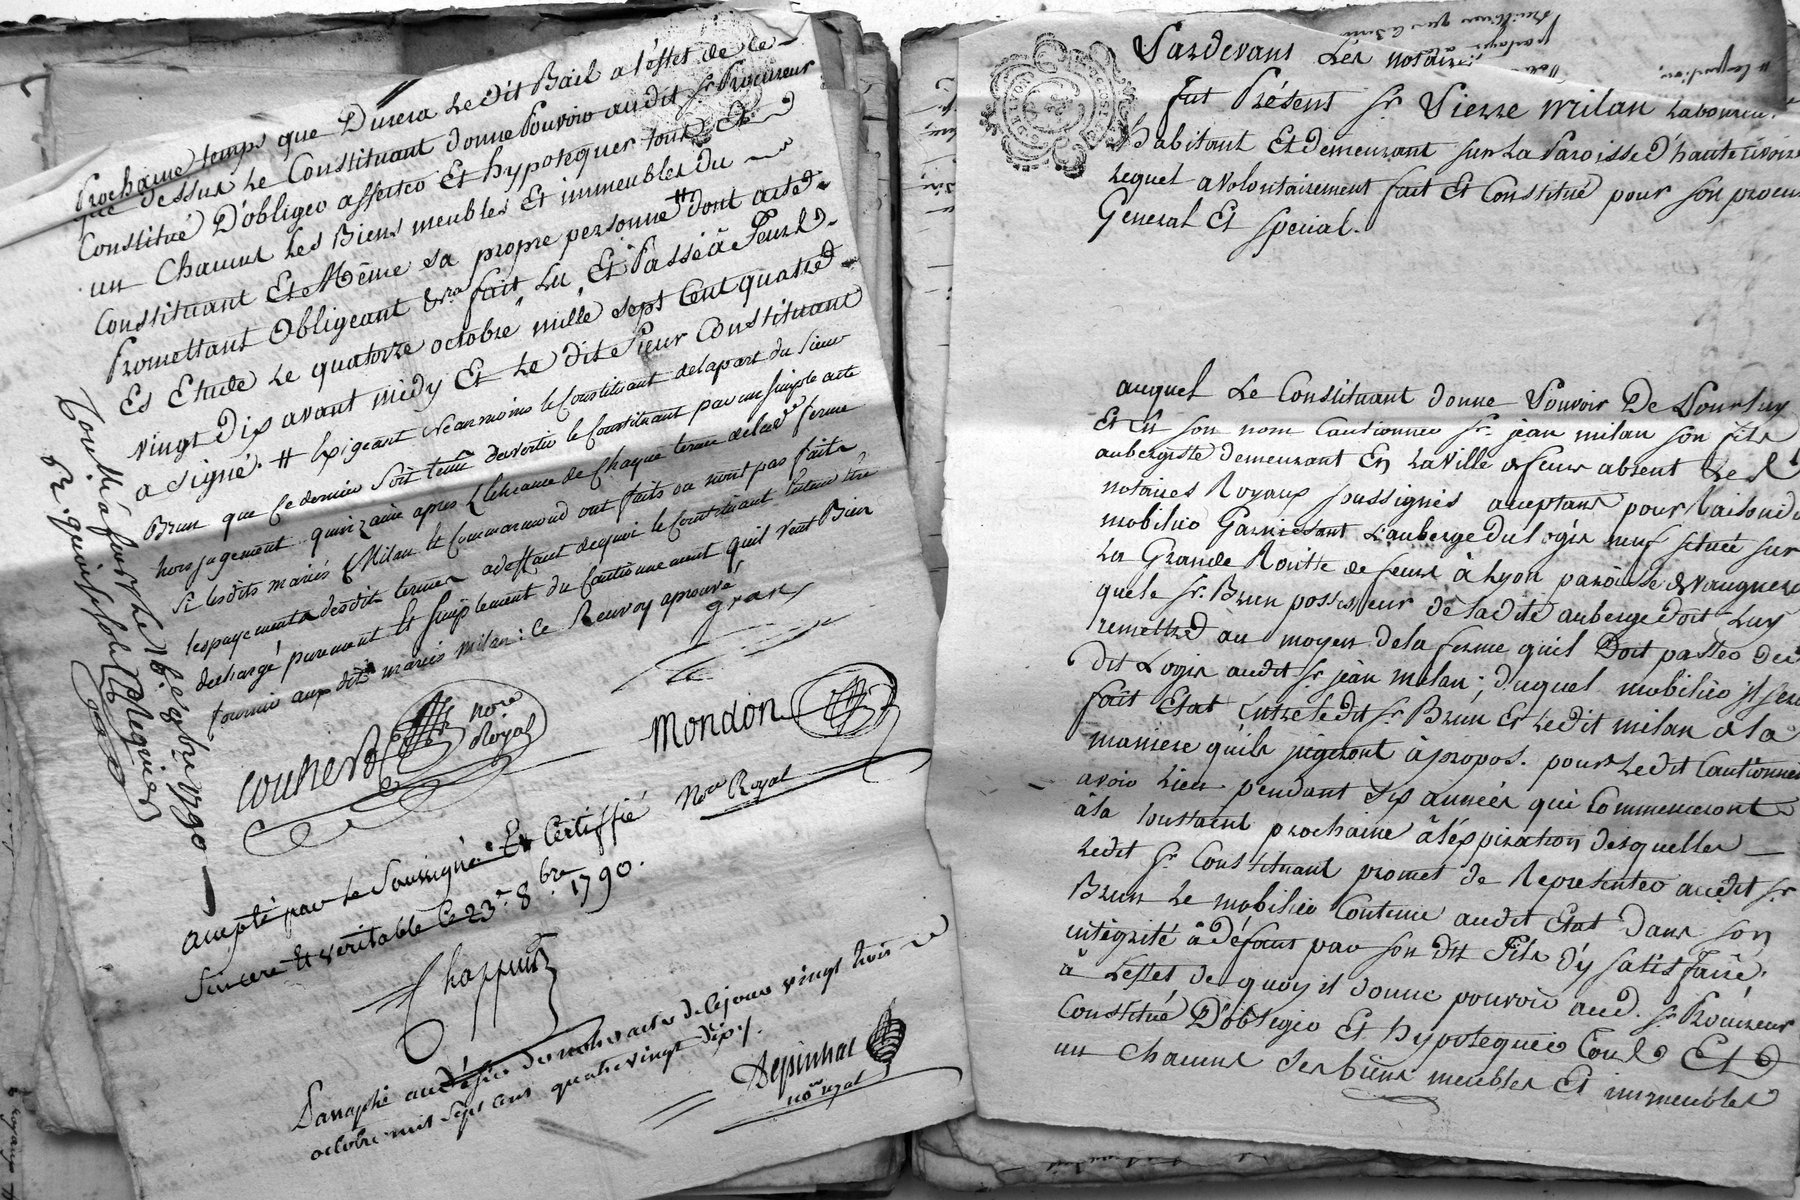 Prochaine temps que Durera Ledit Bail a l'effet de ce
que dessus Le Constituant donne Pouvoir audit Sr. Procureur
Constitué D'obliger affecter Et hypotequer tous Et
un Chacuns Les Biens meubles Et immeubles Du
Constituant Et Même sa propre personne # dont acte
Promettant Obligeant &ra fait, Lu, Et Passé à Feurs
Es Etude Le quatorze octobre mille sept Cent quatre
vingt Dix avant midy Et Le dit Sieur Constituant
a signé. # Exigeant Néanmoins le Constituant de la part du Sieur
Brun que Ce dernier soit tenu d'avertir le Constituant par un simple acte
hors jugement quinzaine apres L'Echeance de Chaque terme de lad. ferme
Si lesdits mariés Milan Et Commarmond ont faits ou n'ont pas faits
les payements desdits termes a deffaut de quoi le Constituant Entend être
dechargé purement Et simplement du Cautionnement qu'il veut Bien
fournir aux dits mariés milan: Ce Renvoy aprouvé
gras
Nore
Royal
Mondon
Nore Royal
accepté par le Soussigné Et Certiffié
Sincere Et veritable Ce 23e. 8bre. 1790.
Chappuis
Paraphé au désir de notre acte de Ce jour vingt trois
octobre mil sept cens quatre vingt Dix.
Depinhac
nore royal
Controllé à feurs le 16 8bre 1790
Pardevant Les notaires
fut Présent Sr. Pierre Milan Laboureur
habitant Et demeurant sur La Paroisse D'hauterivoire
Lequel a volontairement fait Et Constitué pour son procur
General Et special.
auquel Le Constituant donne Pouvoir De Pour luy
Et En son nom Cautionner Sr. jean milan son fils
aubergiste demeurant En La Ville de feurs absent Les
notaires Royaux soussignés aceptans pour Raison d
mobilier Garnissant L'auberge du logis neuf située sur
La Grande Routte de feurs à Lyon paroisse de
que le Sr. Brun possesseur de la dite auberge doit Luy
remettre au moyen de la ferme qu'il Doit passer du
dit Logis audit Sr. jean milan; duquel mobilier il sera
fait Etat Entre ledit Sr. Brun Et Ledit milan de la
maniere qu'ils jugeront à propos. pour Ledit Cautionnem
avoir Lieu pendant Six années qui Commenceront
à la toussaint prochaine à l'éxpiration desquelles
Ledit Sr. Constituant promet de Représenter audit Sr.
Brun Le mobilier Contenu audit Etat Dans son
intégrité à défaut par son dit Fils d'y satisfaire;
à L'effet de quoy il donne pouvoir aud. Sr. Procureur
Constitué D'obliger Et hypotequer Tous Et
un chacuns ses biens meubles Et immeubles